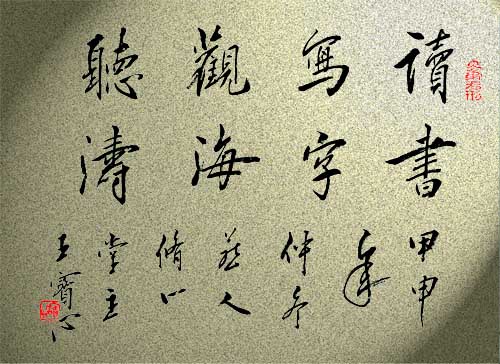 讀書
寫字
觀海
聽濤
甲申
年
仲冬
燕人
脩心
堂主
王寶心